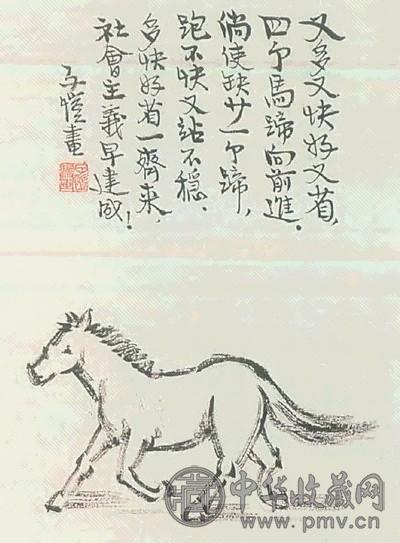 又多又快好又省，
四个馬蹄向前進。
倘使缺少一个蹄，
跑不快又站不穩。
多快好省一齊來，
社會主義早建成！
子愷畫
中华收藏网
www.pmv.cn